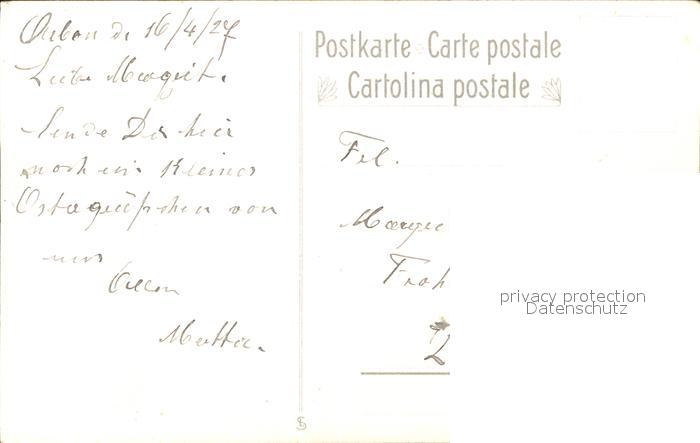 Arbon de 16/4/27
Liebe Margrit.
Sende Dir hier
noch ein kleines
Ostergrüsschen von
uns
Allen
Mutter.
Postkarte Carte postale
Cartolina postale
Frl.
privacy protection
Datenschutz